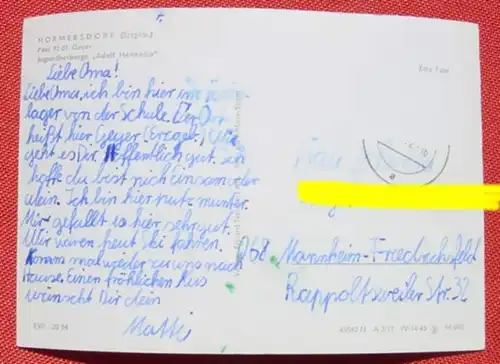 HORMERSDORF (Erzgeb.)
Post 9201 Geyer
Jugendherberge „Adolf Hennecke"
Echt Foto
Liebe Oma!
Liebe Oma, ich bin hier im
lager von der Schule. Der Ort
heißt hier Geyer (Erzgeb.)
geht es Dir Hoffentlich gut. ich
hoffe du best nich Einsam oder
alein. Ich bin hier putz munter.
Mir gefällt es hier sehr gut.
Wir waren heut Ski fahren.
Komm mal wieder zu uns nach
Hause. Einen fröhlichen Kuss
wünscht Dir dein
Matti
D68 Mannheim-Friedrichsfeld
Rappoltsweiler Str. 32